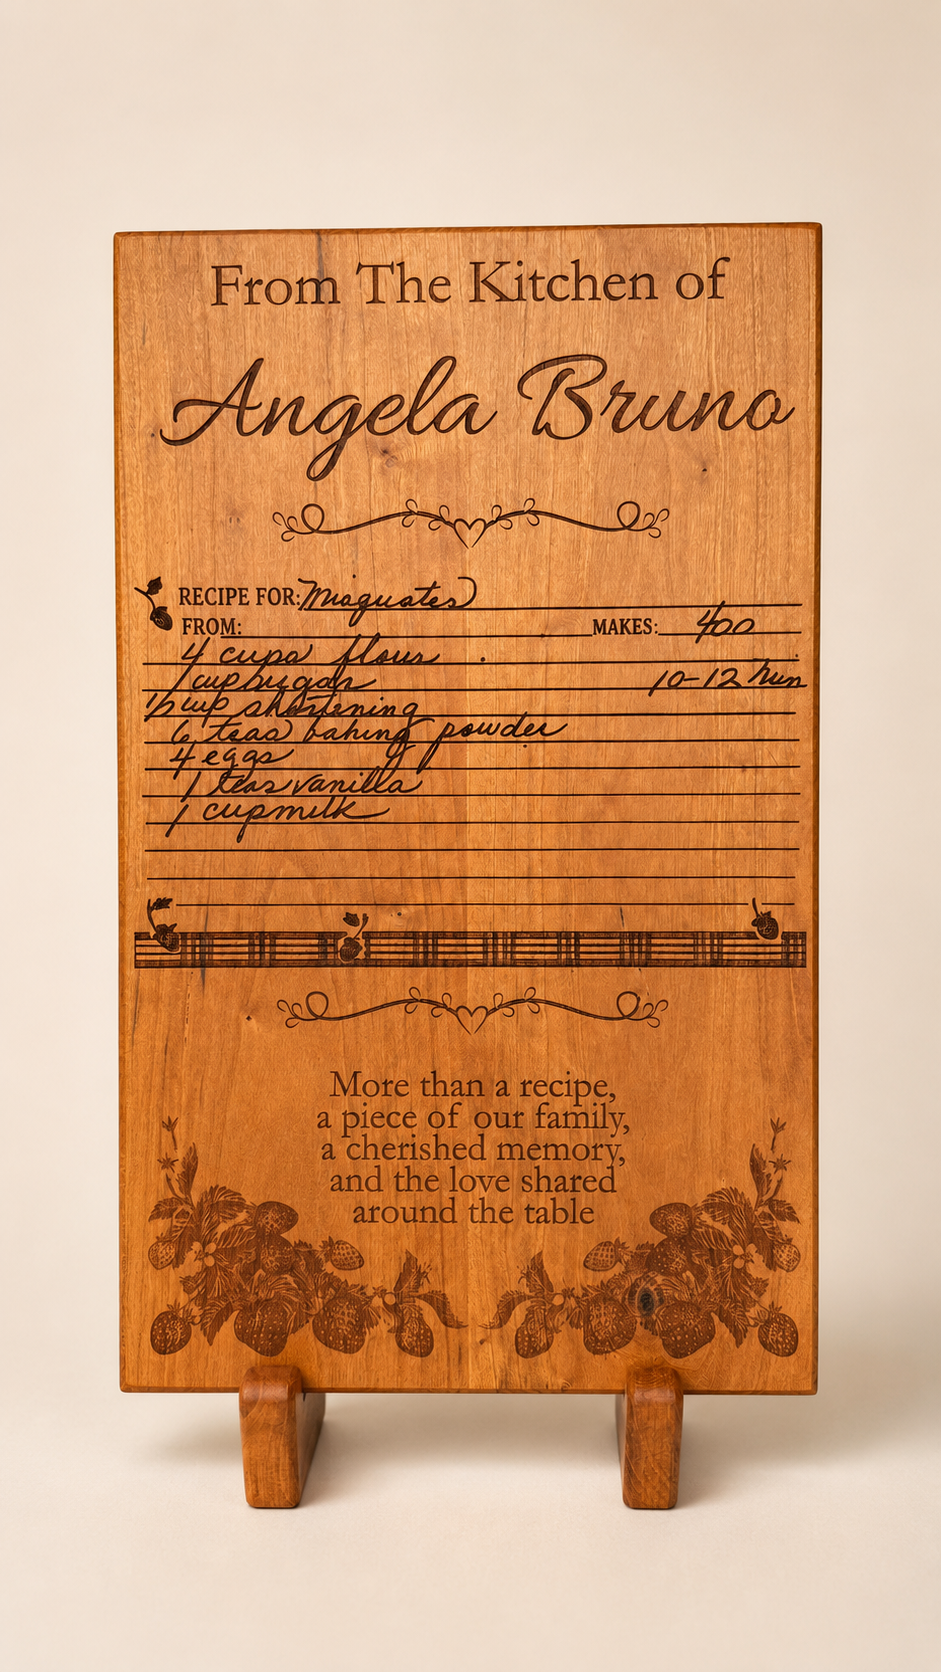 From The Kitchen of
Angela Bruno
RECIPE FOR: Misguates
FROM: MAKES: 400
4 cups flour
1 cup sugar 10-12 min
1/2 cup shortening
6 teas baking powder
4 eggs
1 teas vanilla
1 cup milk
More than a recipe,
a piece of our family,
a cherished memory,
and the love shared
around the table